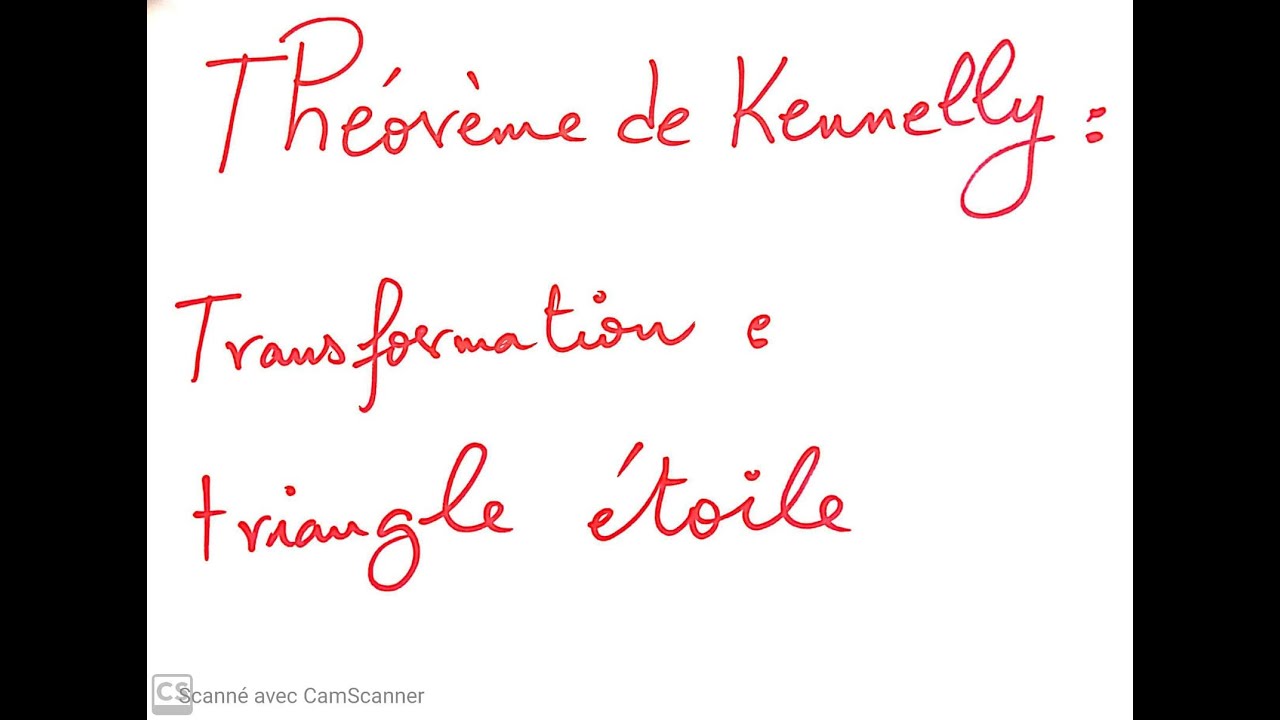 Théorème de Kennelly :
Transformation :
triangle étoile
CS Scanné avec CamScanner